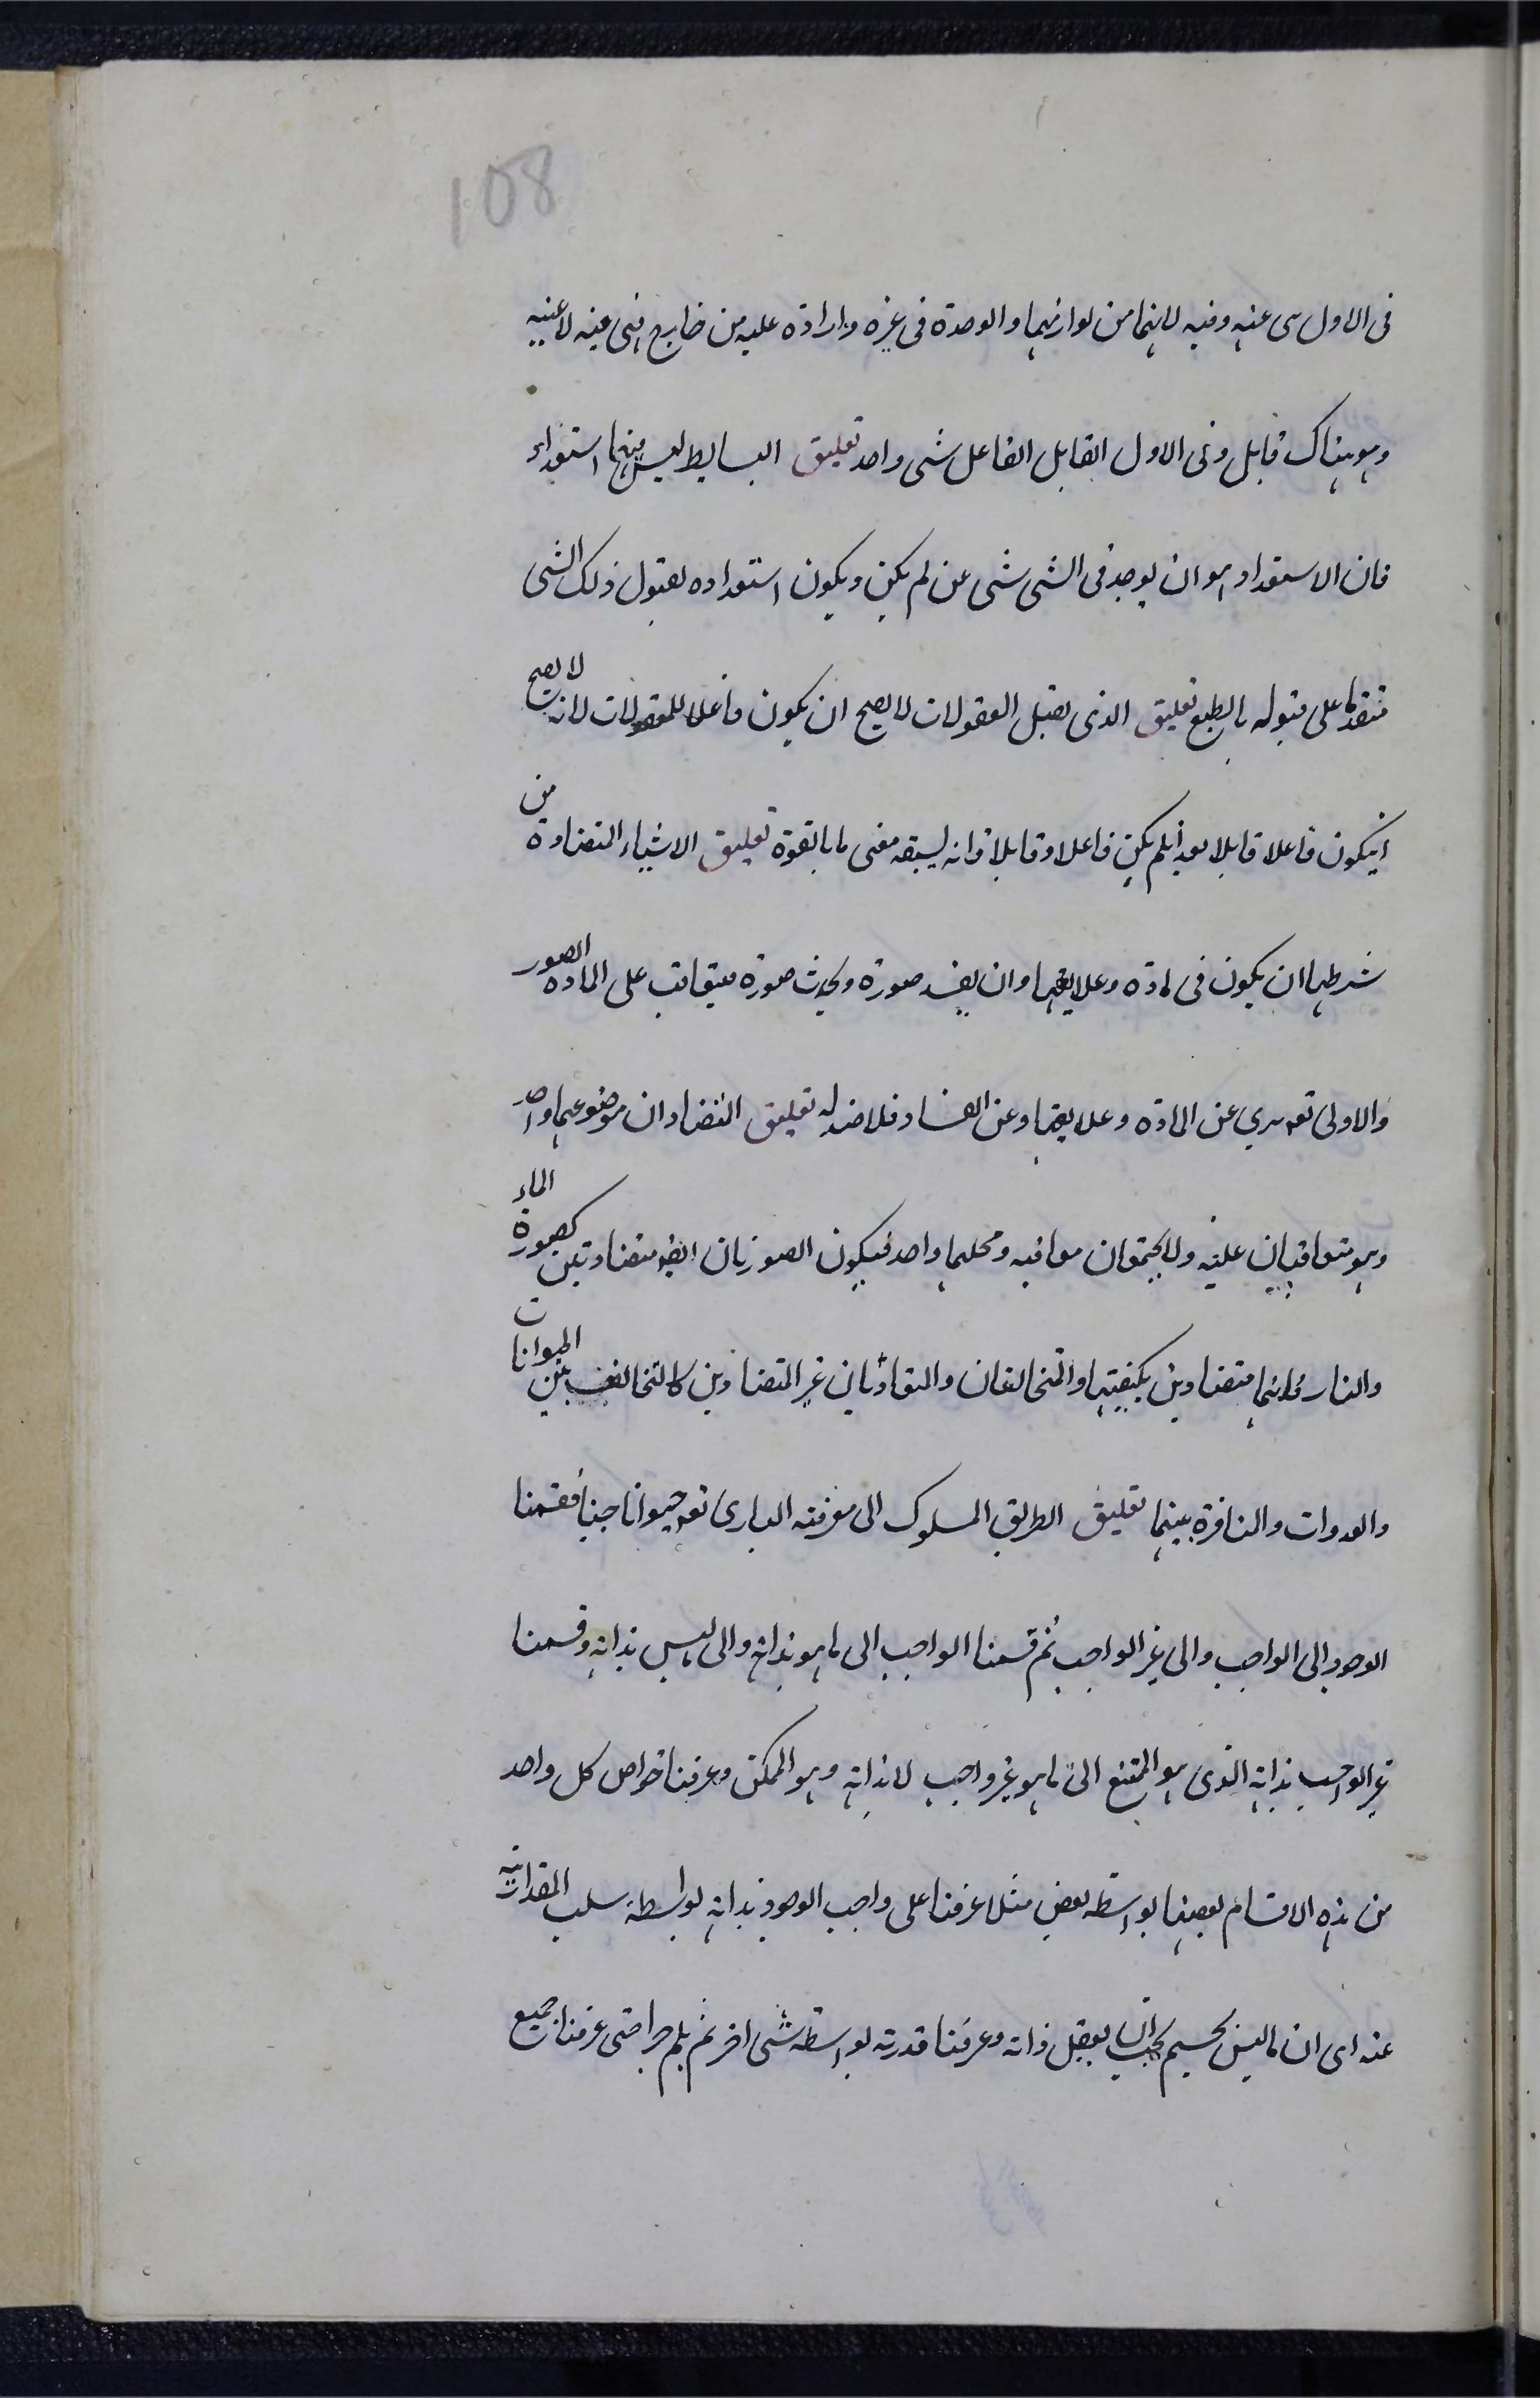 108
فى الاول هى عنه وفيه لانهما من لوازمهما والوحدة فى غيره واردة عليه من خارج فهى فيه لا عنه
وهو هناك قابل وفى الاول القابل الفاعل شى واحد تعليق البسايط ليس فيها استعداد
فان الاستعداد هو ان يوجد فى الشى شى عن لم يكن ويكون استعداده لقبول ذلك الشى
متقدما على قبوله بالطبع تعليق الذى يقبل المعقولات لا يصح ان يكون فاعلا للمعقولات لانه لا يصح
ان يكون فاعلا قابلا بعد ان لم يكن فاعلا وقابلا فانه يسبقه معنى ما بالقوة تعليق الاشياء المتضادة من
شرطها ان يكون فى مادة وعلايقها وان يفسد صورة ويحدث صورة يتعاقب على المادة الصور
والاول تعرى عن المادة وعلايقها وعن الفساد فلا ضد له تعليق الضدان موضوعهما واحد
وهو متعاقبان عليه ولا يجتمعان معا فيه ومحلهما واحد فيكون الصورتان ايضا متضادتين كصورة الماء
والنار فانهما متضادين بكيفيتها والمتخالفان والمتعاديان غير المتضادين كالتخالف بين الحيوانات
والعدوات والمنافرة بينهما تعليق الطريق المسلوك الى معرفته البارى تع هو انا جينا فقسمنا
الوجود الى الواجب والى غير الواجب ثم قسمنا الواجب الى ما هو بذاته والى ليس بذاته وقسمنا
غير الواجب بذاته الذى هو الممتنع الى ما هو غير واجب لا بذاته وهو الممكن وعرفنا خواص كل واحد
من هذه الاقسام بعضها بواسطة بعض مثلا عرفنا على واجب الوجود بذاته بواسطة سلب المقدارية
عنه اى ان ما ليس بجسيم يجب ان يعقل ذاته وعرفنا قدرته بواسطة شى اخر ثم هلم جرا حتى عرفنا جميع